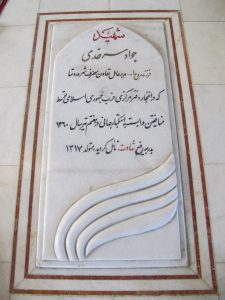 شهید
جواد سرحدی
فرزند روح ا... مدیرعامل تعاون مصرف شهر و روستا
که در انفجار دفتر مرکزی حزب جمهوری اسلامی توسط
منافقین وابسته به استکبار جهانی در هفتم تیر سال ۱۳۶۰
بدرجه رفیع شهادت نائل گردید، متولد ۱۳۱۷